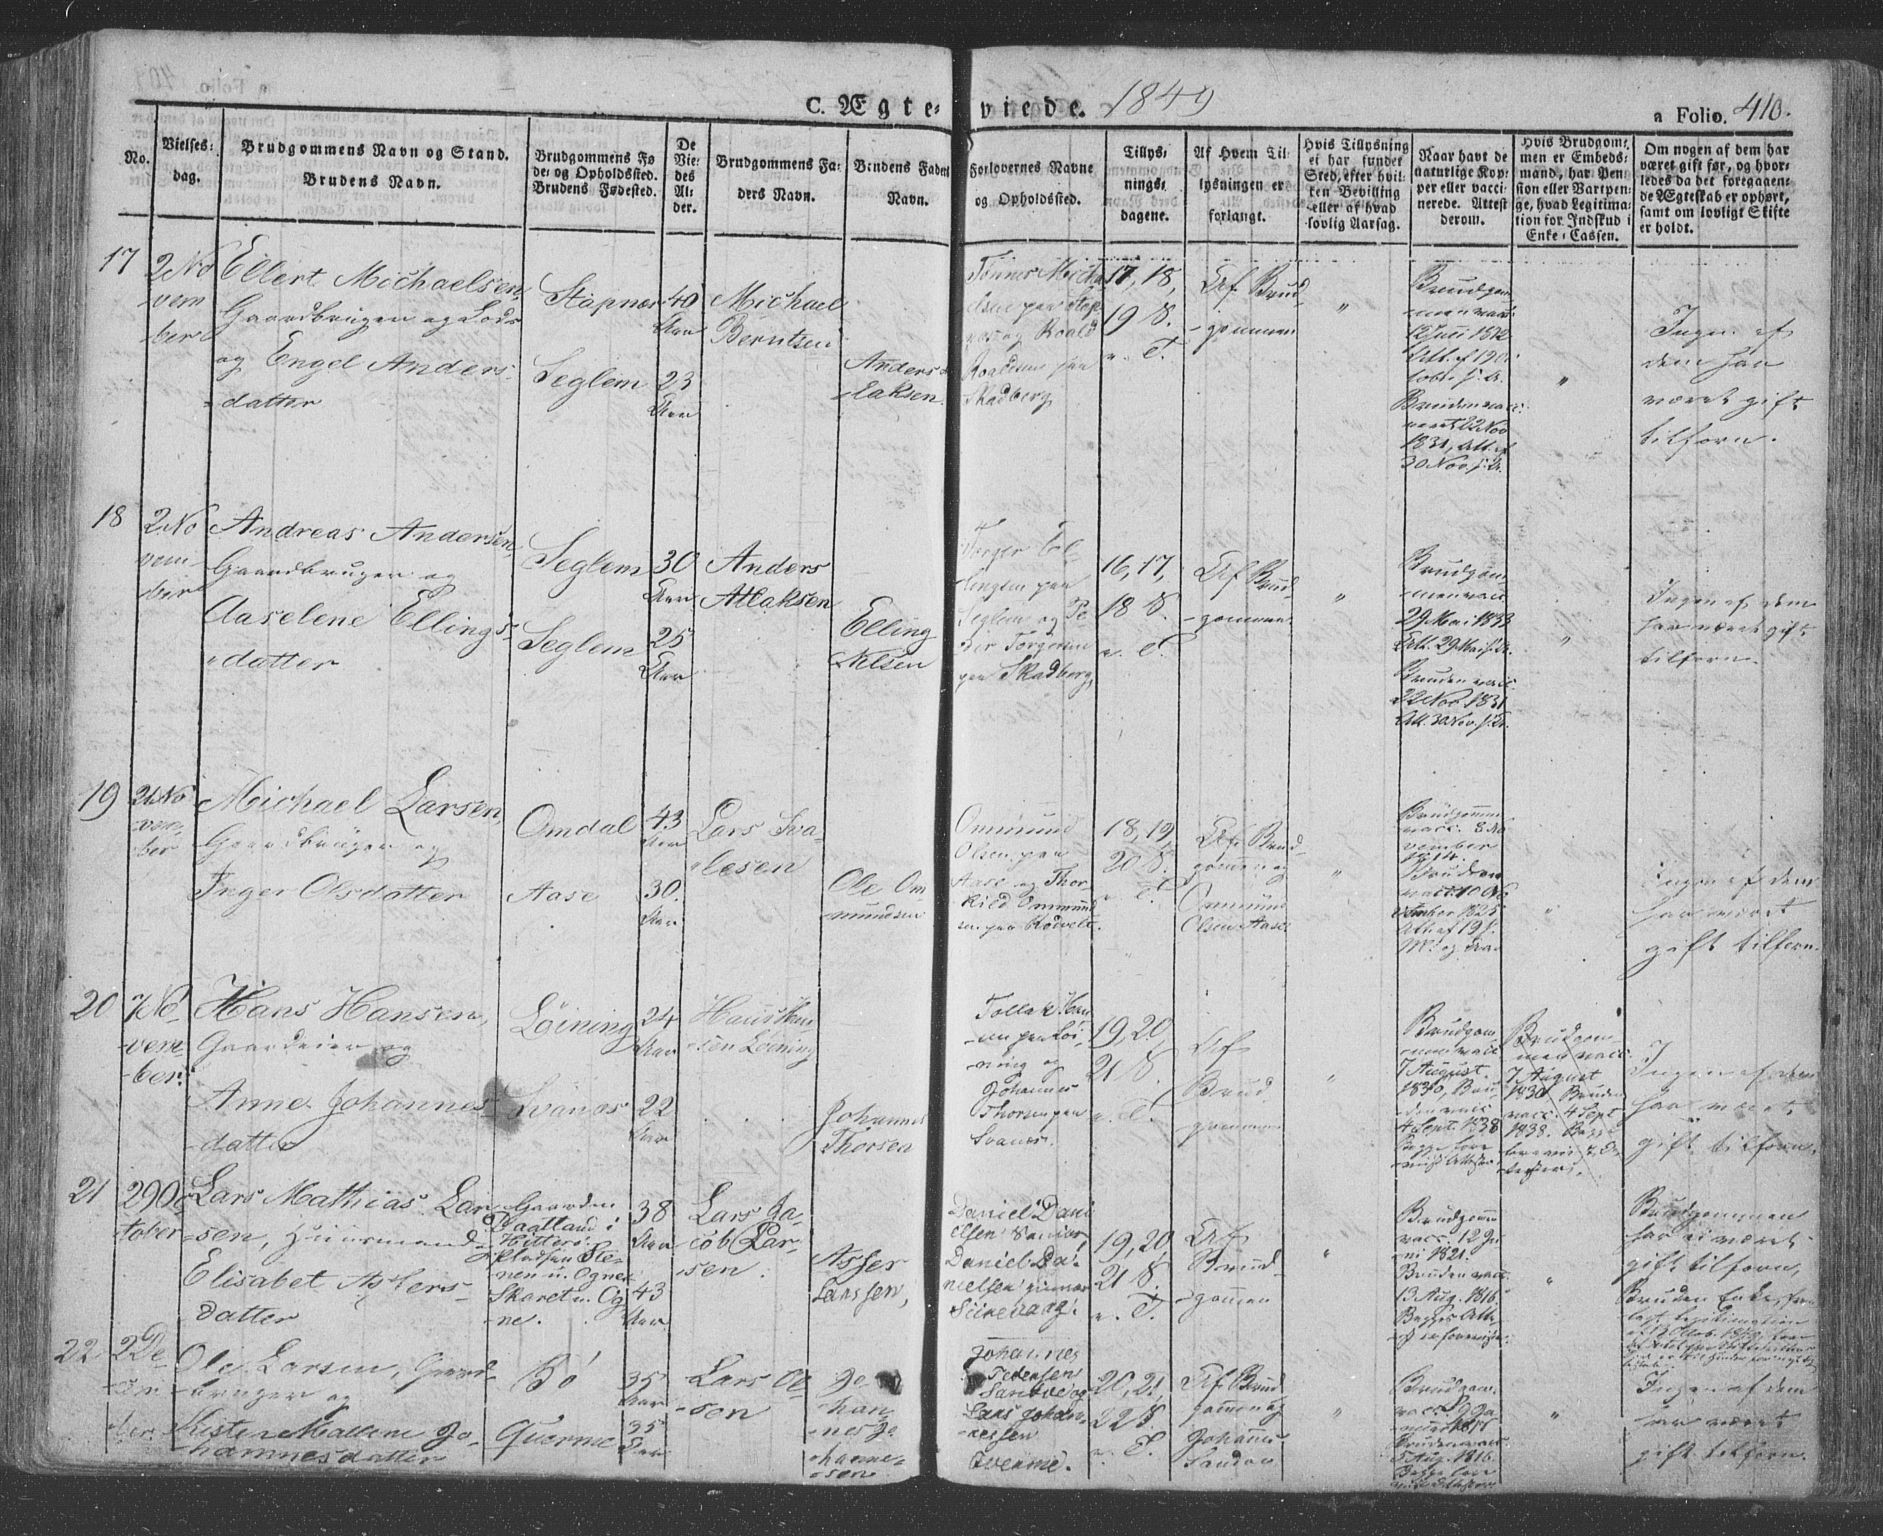 C. Ægteviede. 1849
a Folio. 410.
No.
Vielses-
dag.
Brudgommens Navn og Stand.
Brudens Navn.
Brudgommens Fø-
de- og Opholdssted.
Brudens Fødested.
De
Vie-
des
Al-
der.
Brudgommens Fa-
ders Navn.
Brudens Faders
Navn.
Forlovernes Navne
og Opholdssted.
Tillys-
nings-
dagene.
Af Hvem Til-
lysningen er
forlangt.
Hvis Tillysning
ei har fundet
Sted, efter hvil-
ken Bevilling
eller af hvad
lovlig Aarsag.
Naar havt de
naturlige Kop-
per eller vacci-
nerede. Attest
derom.
Hvis Brudgom-
men er Embeds-
mand, har Pen-
sion eller Vartpen-
ge, hvad Legitima-
tion for Indskud i
Enke-Cassen.
Om nogen af dem har
været gift før, og hvor-
ledes da det foregaaen-
de Ægteskab er ophørt,
samt om lovligt Skifte
er holdt.
17
2 No
vem
ber
Ellert Michaelsen
Gaardbruger og Lods
og Engel Anders-
datter
Stapnes
Seglem
40
Aar
23
Aar
Michael
Berntsen
Anders
Tønnes Micha
elsen paa Stap
nes og Roald
Roaldsen paa
Skadberg
17, 18,
19 S.
e. T.
Af Brud-
gommen
"
Brudgom
men vacc.
12 Juni 1812
Bruden vacc.
1831, Att. af
30 Nov. s. A.
"
Ingen af
dem har
været gift
tilforn.
18
2 No
vem
ber
Andreas Andersen,
Gaardbruger og
Aaselene Ellings-
datter
Seglem
Seglem
30
Aar
25
Aar
Anders
Atlaksen
Elling
Nilsen
Torger El-
lingsen paa
Seglem og Pe-
der Torgersen
paa Skadberg
16, 17,
18 S.
e. T.
Af Brud-
gommen
"
Brudgom
men vacc.
29 Mai 1833
Att. 29 Mai s. A.
Bruden vacc.
22 Nov. 1831
Att. 30 Nov. s. A.
"
Ingen af dem
har været gift
tilforn.
19
No
vem-
ber
Michael Larsen,
Gaardbruger og
Inger Olsdatter
Omdal
Aase
43
Aar
30
Aar
Lars Sva-
lesen
Ole Om-
mundsen
Ommund
Olsen paa
Aase og Thor-
kild Ommund
sen paa Rødvelt.
18, 19,
20 S.
e. T.
Af Brud-
gommen og
Ommund
Olsen Aase
"
Brudgomm
vacc. 8 No
vember
1814.
Bruden
vacc. 10 No
vember 1825
"
Ingen af dem
har været
gift tilforn.
20
7 No-
vem-
ber.
Hans Hansen,
Gaardeier og
Anne Johannes-
datter
Løining
Svanæs
24
Aar
22
Aar
Hans Han
sen Løining
Johannes
Thorsen
Tollak Han
sen paa Løi-
ning og
Johannes
Thorsen paa
Svanes.
19, 20,
21 S.
e. T.
Af
Brud
gommen
"
Brudgom
men vacc.
7 August
1830, Bru-
den vacc.
4 Sept. 1838
Brudgom
men vacc.
7 August
1830. Bruden
vacc. 4 Sept
1838. Begge
Ingen af dem
har været
gift tilforn.
21
29 Oc
tober
Lars Mathias Lar-
sen, Huusmand
Elisabet Assers-
datter
Gaarden
38
Aar
43
Aar
Lars Ja-
cob Lar-
sen.
Asser
Larssen,
Daniel Dani
elsen Senior,
Daniel Da-
nielsen junior
19, 20,
21 S.
e. T.
Af
Brud-
gommen
"
Brudgomm
vacc. 12 Ju-
ni 1821.
Bruden vacc.
13 Aug. 1816.
Begges Atte
"
Brudgommen
har ei været
gift tilforn,
Bruden Enke,
22
2 De-
cem
ber.
Ole Larsen, Gaard-
bruger og
Kisten Mallene Jo-
hannesdatter
Bø
Querme
35
Aar
35
Aar
Lars Ol-
sen
Jo
han-
nes Jo
hanne-
sen
Johannes
Pedersen
Sandve og
Lars Johan-
nessen
Qverme.
20, 21,
22 S.
e. T.
Af Brud-
gommen og
Johannes
"
Brudgom
vacc. 9 Ja-
Bruden vacc.
5 Aug. 1816.
"
Ingen af dem
har været
gift tilforn.